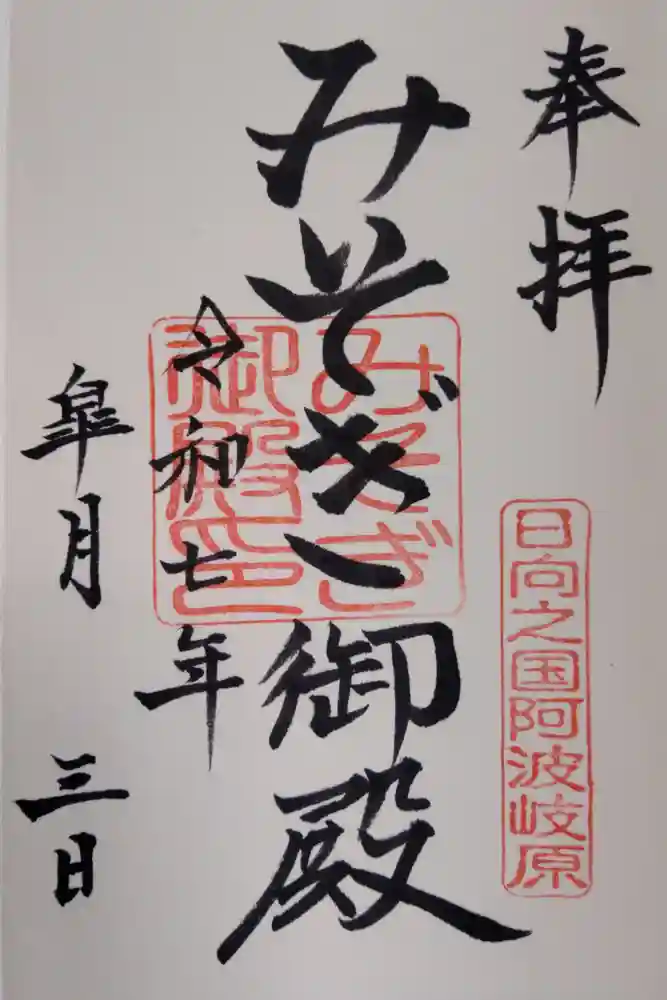 奉拝
日向之国阿波岐原
みそぎ御殿
みそぎ
御殿印
令和七年
皐月三日